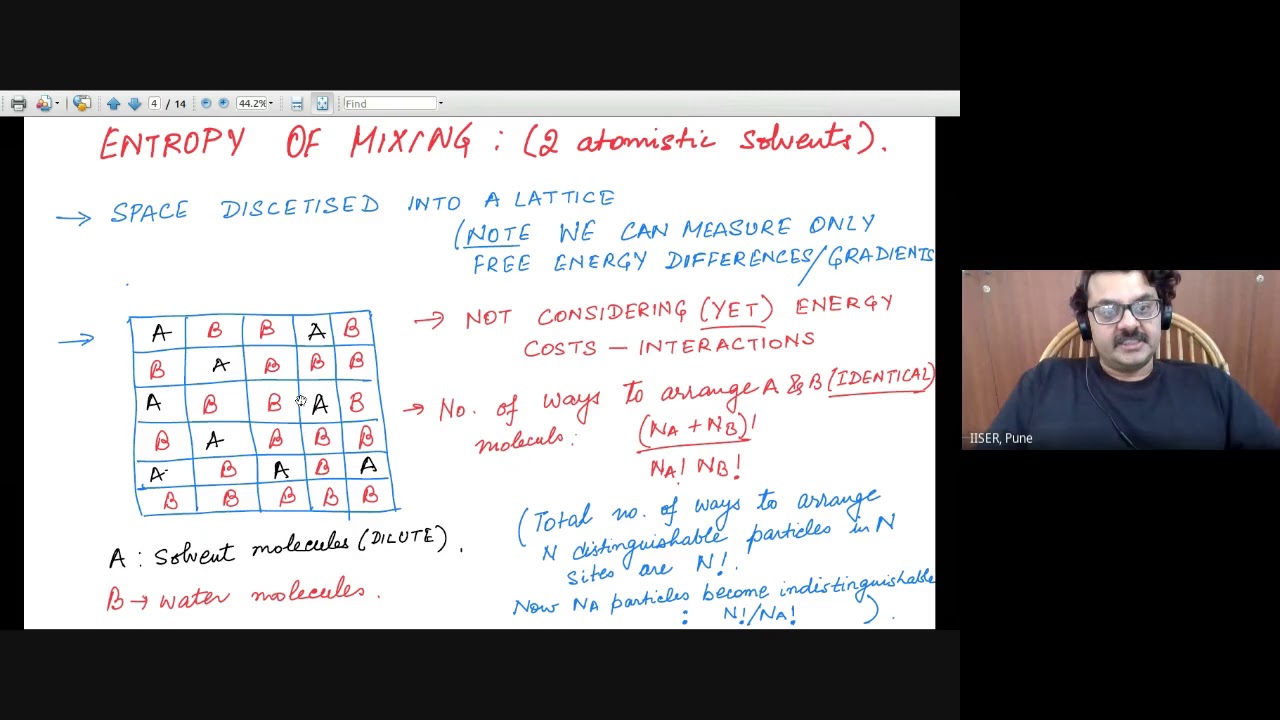 4 / 14 44.2% Find
ENTROPY OF MIXING : (2 atomistic solvents).
→ SPACE DISCETISED INTO A LATTICE
(NOTE WE CAN MEASURE ONLY
FREE ENERGY DIFFERENCES/GRADIENTS
→ NOT CONSIDERING (YET) ENERGY
COSTS – INTERACTIONS
→
A B B A B
B A B B B
A B B A B
B A B B B
A B A B A
B B B B B
→ No. of ways to arrange A & B (IDENTICAL)
molecules:
(NA + NB)!
NA! NB!
(Total no. of ways to arrange
N distinguishable particles in N
sites are N!.
Now NA particles become indistinguishable
: N!/NA! ).
A : Solvent molecules (DILUTE).
B → water molecules.
IISER, Pune